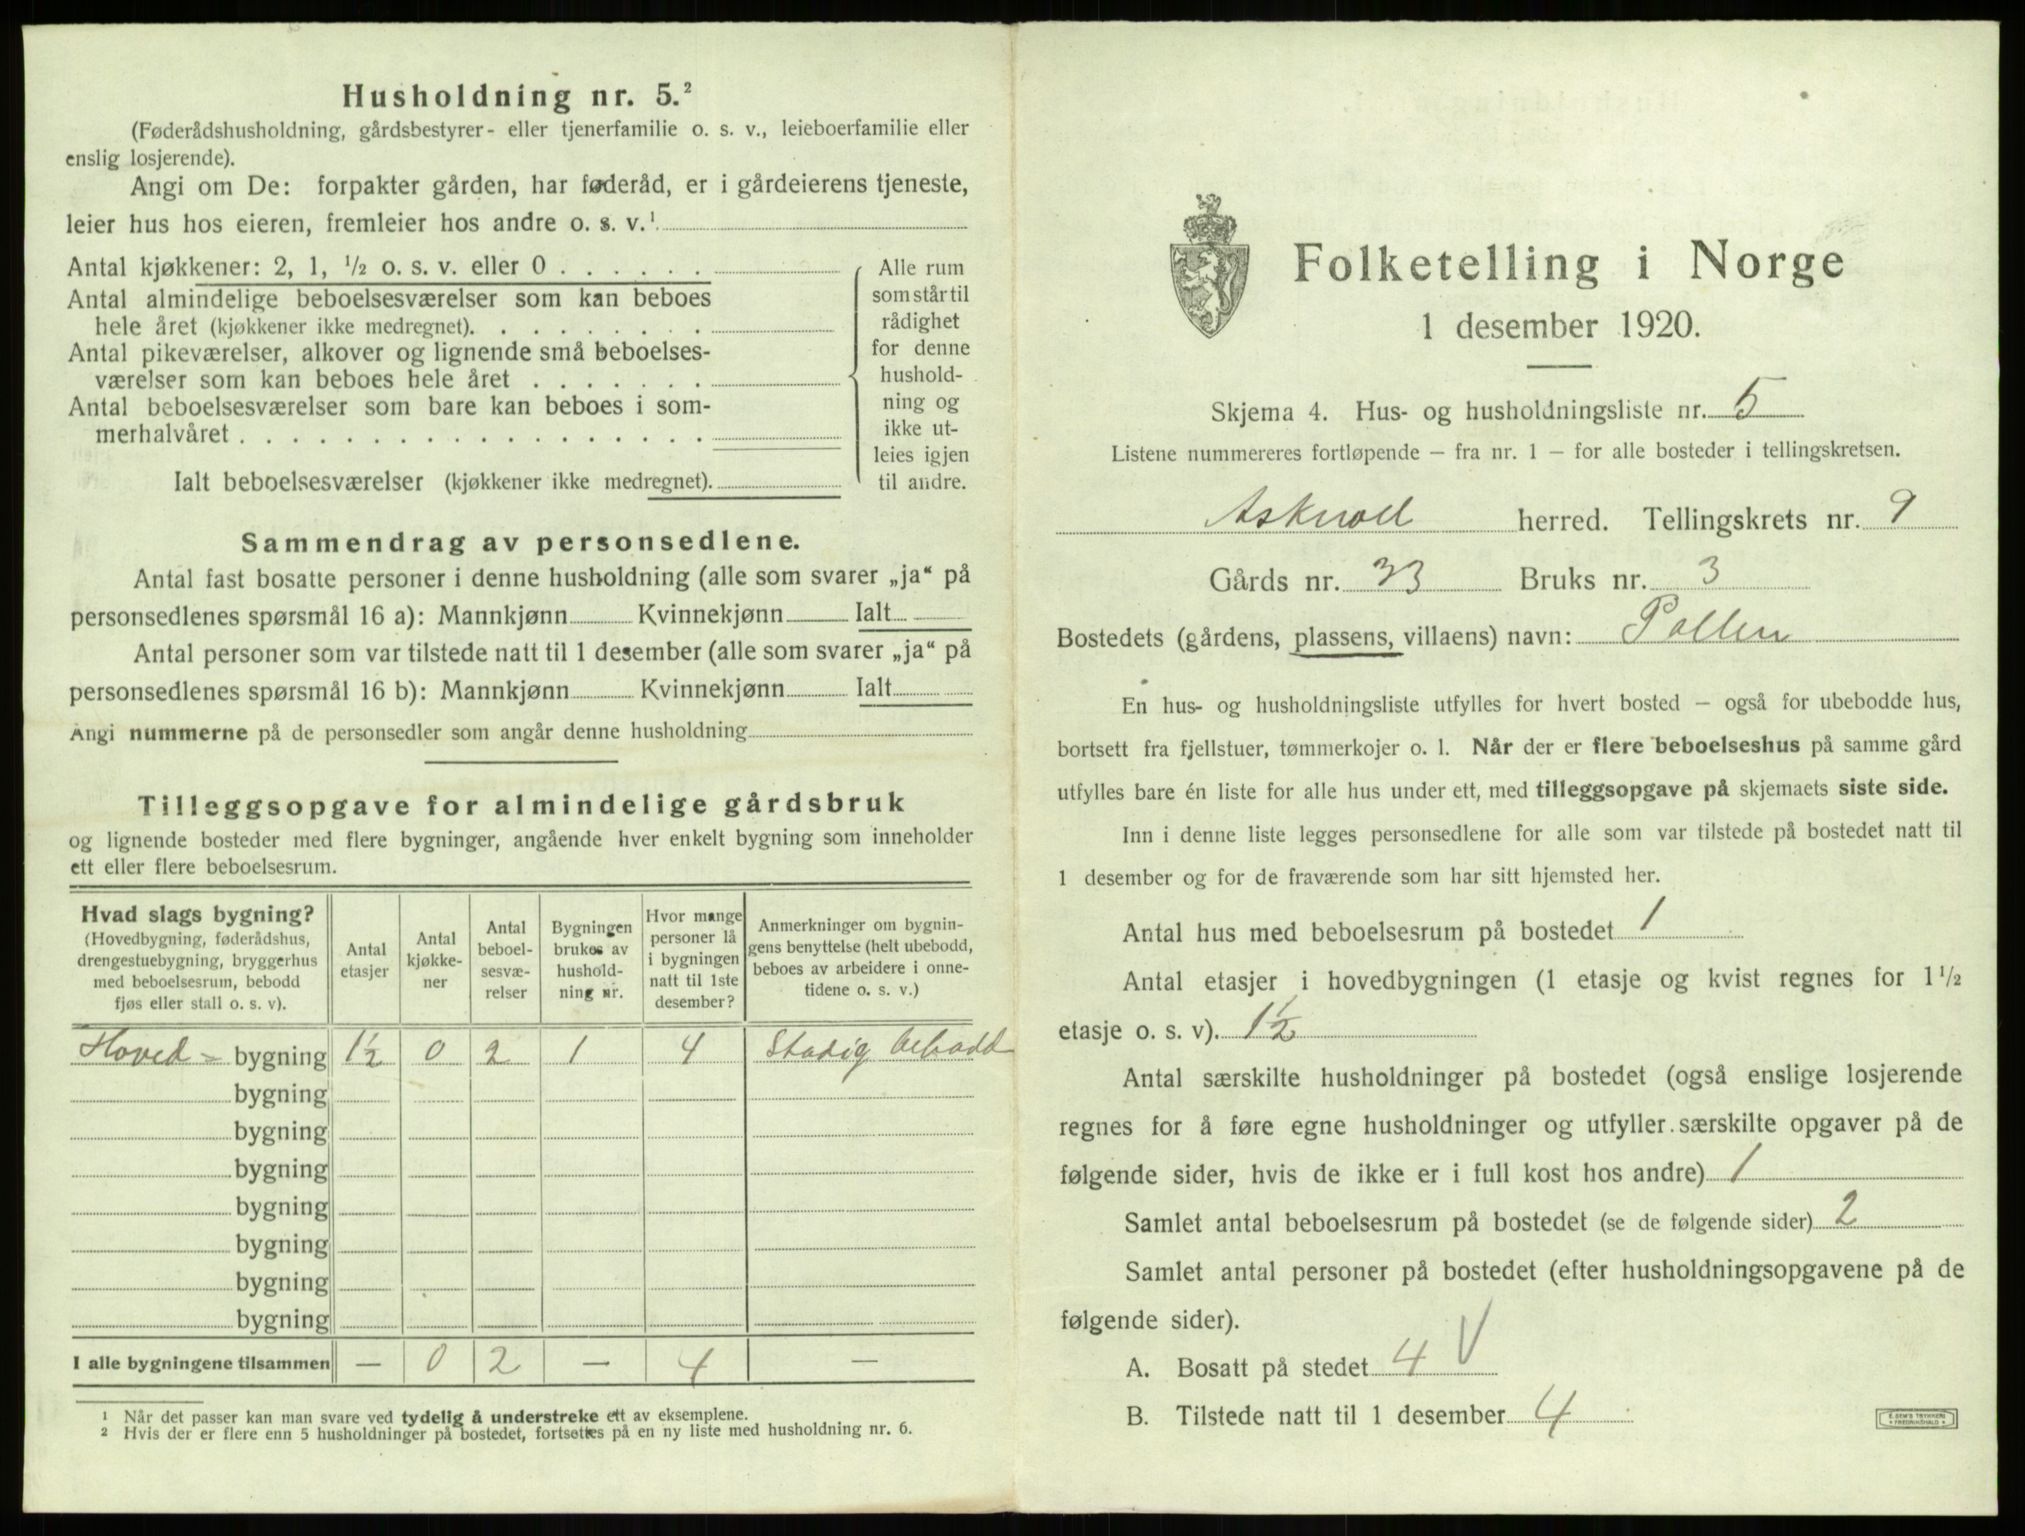 Husholdning nr. 5.²
(Føderådshusholdning, gårdsbestyrer- eller tjenerfamilie o. s. v., leieboerfamilie eller
enslig losjerende).
Angi om De: forpakter gården, har føderåd, er i gårdeierens tjeneste,
leier hus hos eieren, fremleier hos andre o. s. v.¹
Antal kjøkkener: 2, 1, ½ o. s. v. eller 0 . . . . . .
Antal almindelige beboelsesværelser som kan beboes
hele året (kjøkkener ikke medregnet). . . . . . . . .
Antal pikeværelser, alkover og lignende små beboelses-
værelser som kan beboes hele året . . . . . . .
Antal beboelsesværelser som bare kan beboes i som-
merhalvåret . . . . . . . . . . . . . . . . . .
Ialt beboelsesværelser (kjøkkener ikke medregnet).
Alle rum
som står til
rådighet
for denne
hushold-
ning og
ikke ut-
leies igjen
til andre.
Sammendrag av personsedlene.
Antal fast bosatte personer i denne husholdning (alle som svarer „ja“ på
personsedlenes spørsmål 16 a): Mannkjønn Kvinnekjønn Ialt
Antal personer som var tilstede natt til 1 desember (alle som svarer „ja“ på
personsedlenes spørsmål 16 b): Mannkjønn Kvinnekjønn Ialt
Angi nummerne på de personsedler som angår denne husholdning
Tilleggsopgave for almindelige gårdsbruk
og lignende bosteder med flere bygninger, angående hver enkelt bygning som inneholder
ett eller flere beboelsesrum.
Hvad slags bygning?
(Hovedbygning, føderådshus,
drengestuebygning, bryggerhus
med beboelsesrum, bebodd
fjøs eller stall o. s. v).
Antal
etasjer
Antal
kjøkke-
ner
Antal
beboel-
sesvæ-
relser
Bygningen
brukes av
hushold-
ning nr.
Hvor mange
personer lå
i bygningen
natt til 1ste
desember?
Anmerkninger om bygnin-
gens benyttelse (helt ubebodd,
beboes av arbeidere i onne-
tidene o. s. v.)
Hoved- bygning 1½ 0 2 1 4 Stadig bebodd
bygning
bygning
bygning
bygning
bygning
bygning
bygning
I alle bygningene tilsammen — 0 2 — 4 —
¹ Når det passer kan man svare ved tydelig å understreke ett av eksemplene.
² Hvis der er flere enn 5 husholdninger på bostedet, fortsettes på en ny liste med husholdning nr. 6.
Folketelling i Norge
1 desember 1920.
Skjema 4. Hus- og husholdningsliste nr. 5
Listene nummereres fortløpende – fra nr. 1 – for alle bosteder i tellingskretsen.
Askvoll herred. Tellingskrets nr. 9
Gårds nr. 33 Bruks nr. 3
Bostedets (gårdens, plassens, villaens) navn: Pollen
En hus- og husholdningsliste utfylles for hvert bosted – også for ubebodde hus,
bortsett fra fjellstuer, tømmerkojer o. l. Når der er flere beboelseshus på samme gård
utfylles bare én liste for alle hus under ett, med tilleggsopgave på skjemaets siste side.
Inn i denne liste legges personsedlene for alle som var tilstede på bostedet natt til
1 desember og for de fraværende som har sitt hjemsted her.
Antal hus med beboelsesrum på bostedet 1
Antal etasjer i hovedbygningen (1 etasje og kvist regnes for 1½
etasje o. s. v). 1½
Antal særskilte husholdninger på bostedet (også enslige losjerende
regnes for å føre egne husholdninger og utfyller særskilte opgaver på de
følgende sider, hvis de ikke er i full kost hos andre) 1
Samlet antal beboelsesrum på bostedet (se de følgende sider) 2
Samlet antal personer på bostedet (efter husholdningsopgavene på de
følgende sider).
A. Bosatt på stedet 4 V
B. Tilstede natt til 1 desember 4
E. SEM'S TRYKKERI
FREDRIKSHALD